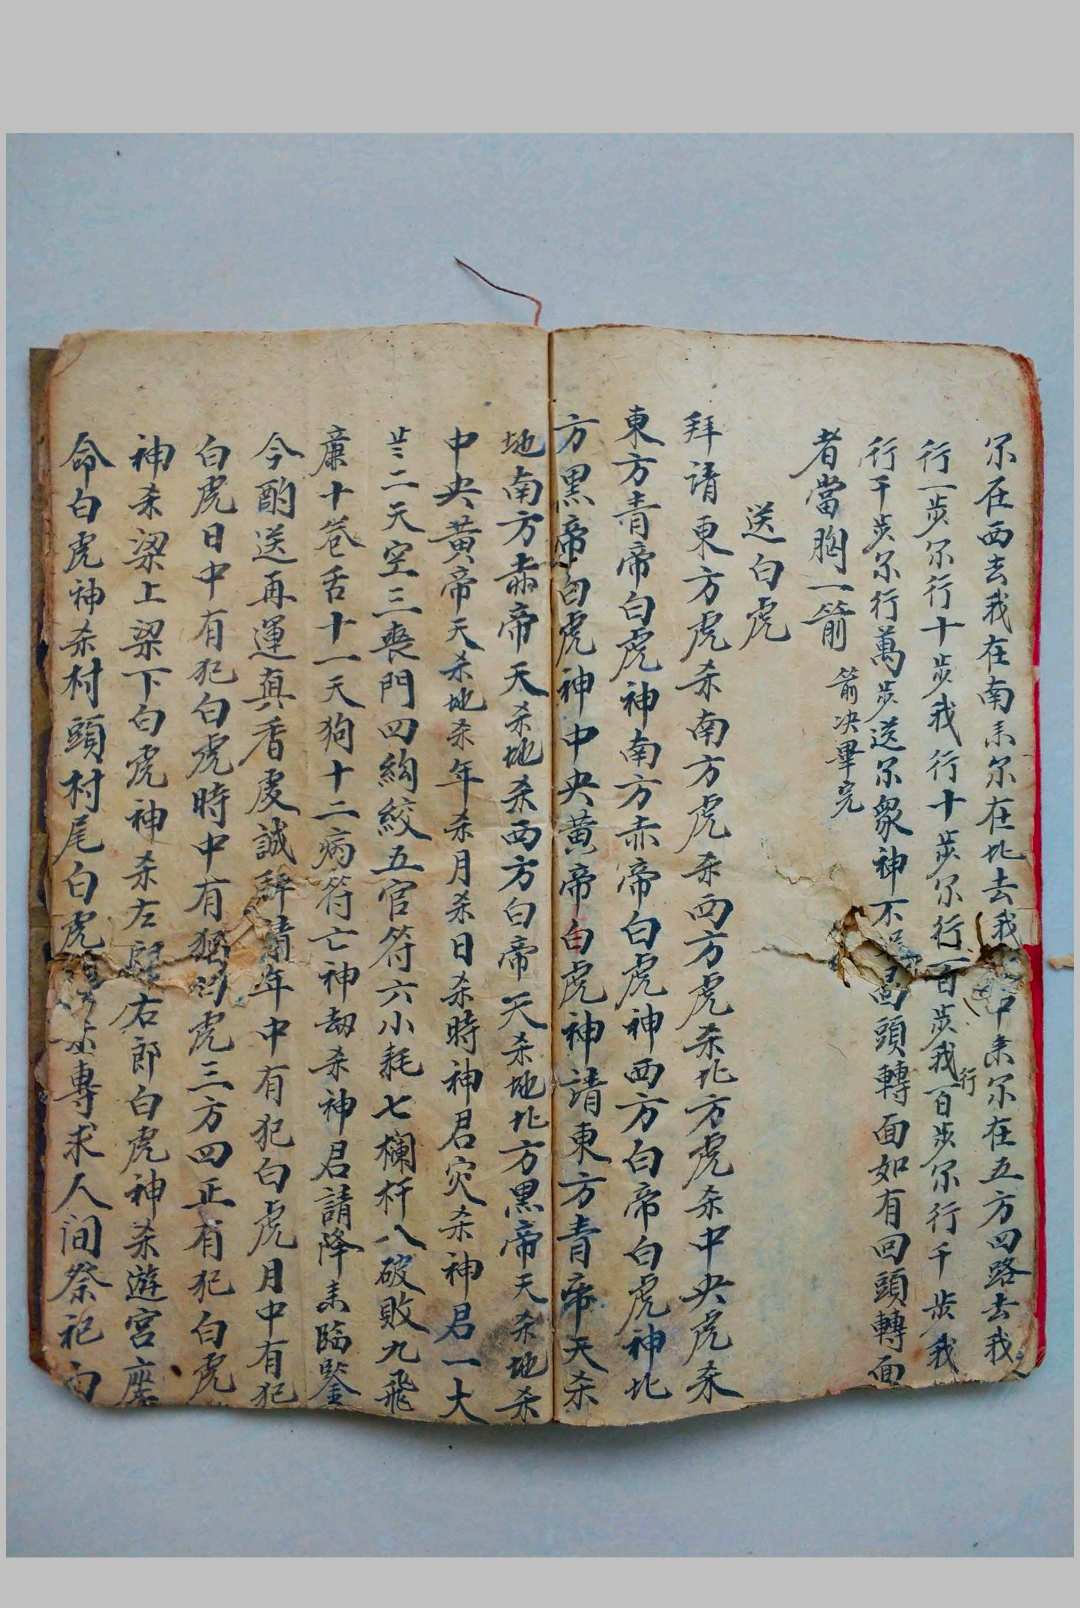 尔在西去我在南来尔在北去我中来尔在五方四路去我
行一步尔行十步我行十步尔行百步我行百步尔行千步我
行千步尔行萬步送尔衆神不回頭轉面如有回頭轉面
者當胸一箭 箭决畢完
送白虎
拜请東方虎杀南方虎杀西方虎杀北方虎杀中央虎杀
東方青帝白虎神南方赤帝白虎神西方白帝白虎神北
方黑帝白虎神中央黄帝白虎神請東方青帝天杀
地南方赤帝天杀地杀西方白帝天杀地北方黑帝天杀地杀
中央黄帝天杀地杀年杀月杀日杀時神君灾杀神君一大
二天空三丧門四絞五官符六小耗七欄杆八破敗九飛
廉十卷舌十一天狗十二病符亡神劫杀神君請降来臨鍳
今酌送再運真香虔誠辞請年中有犯白虎月中有犯
白虎日中有犯白虎時中有犯虎三方四正有犯白虎
神杀梁上梁下白虎神杀左郎右郎白虎神杀遊宫
命白虎神杀村頭村尾白虎專求人间祭祀白